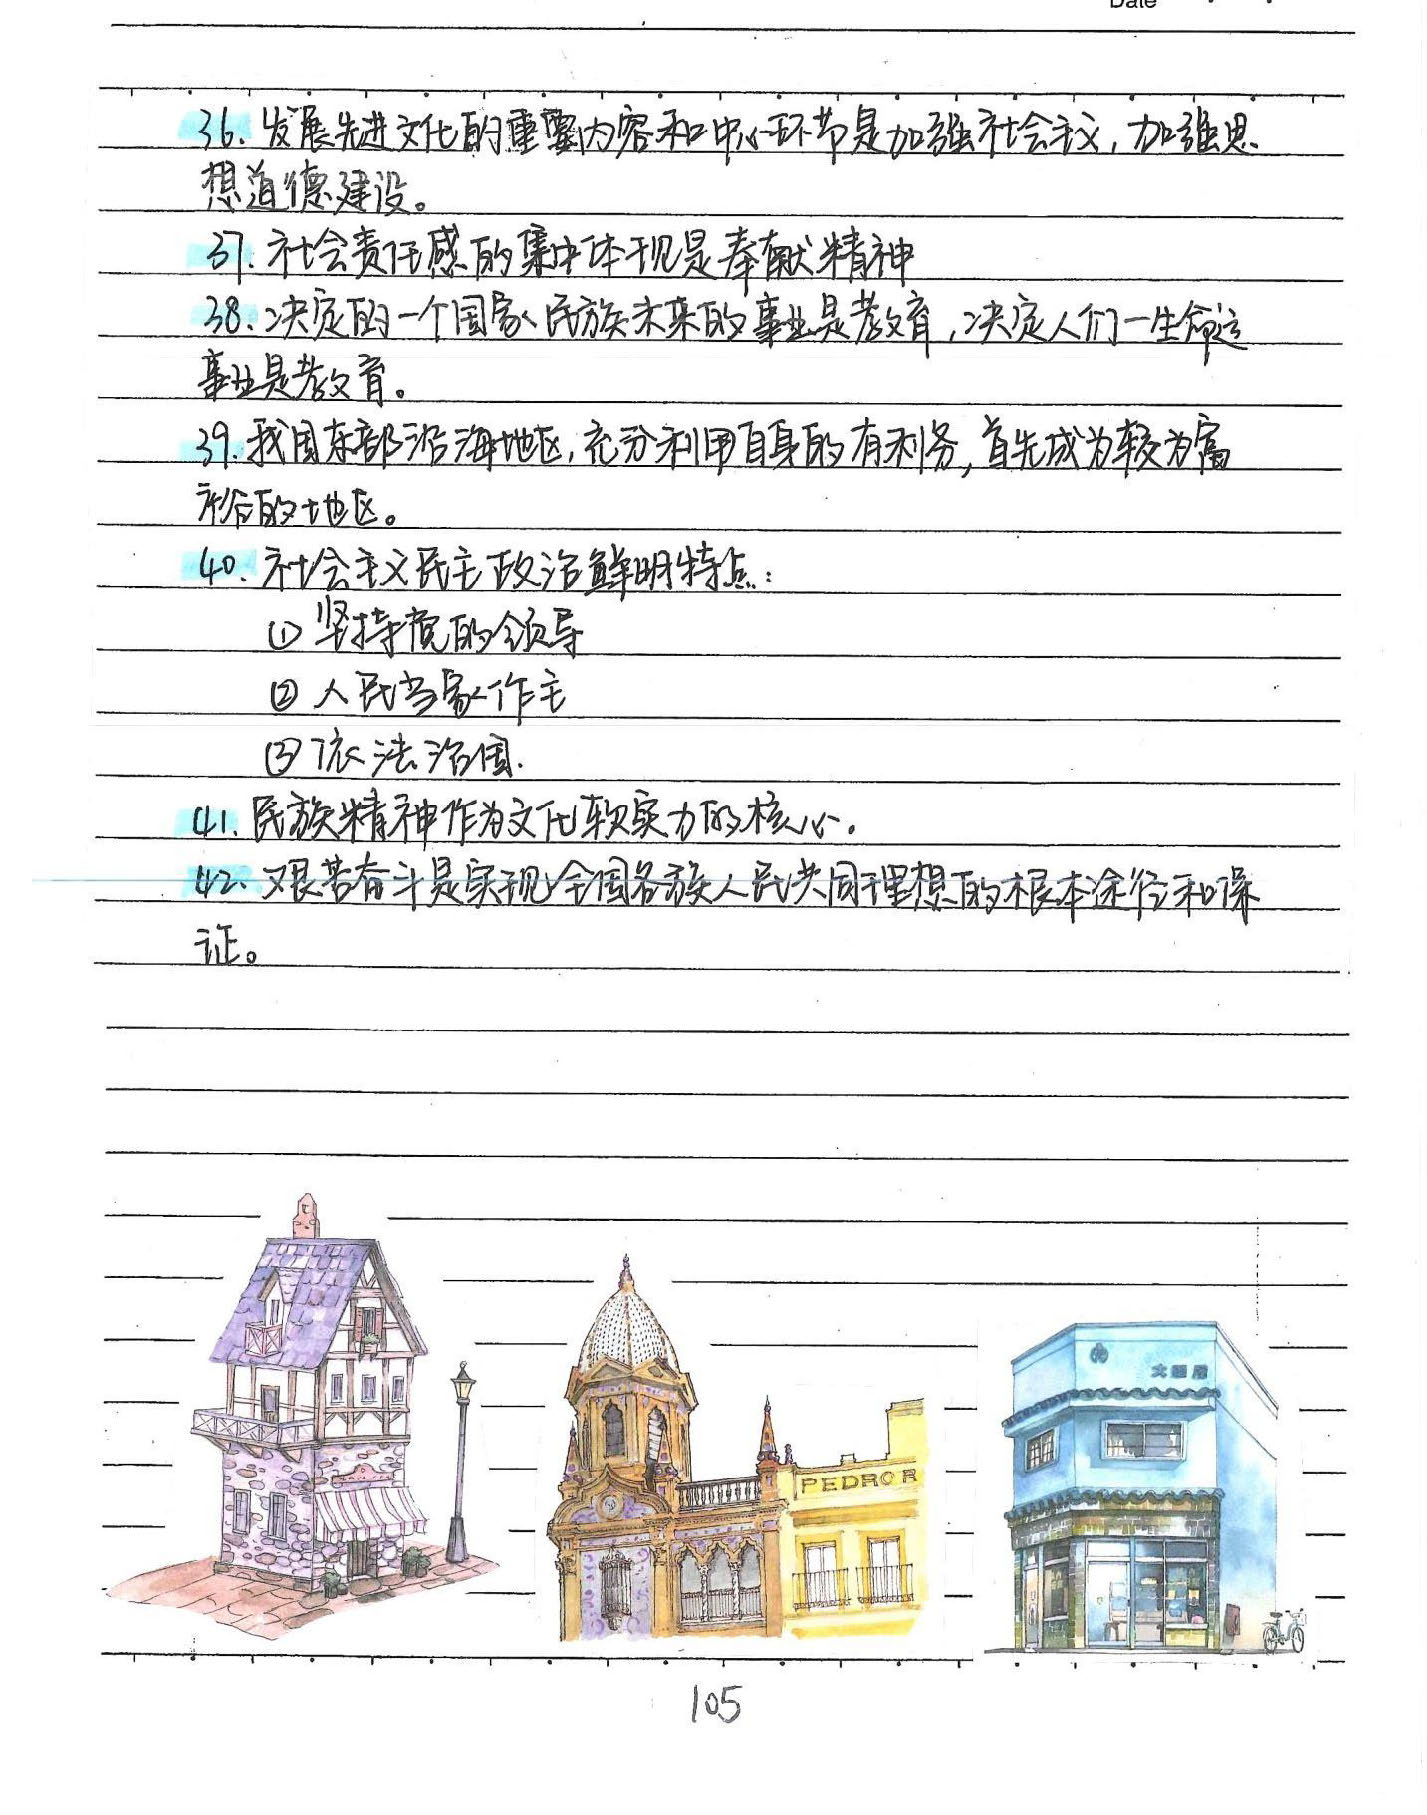 Date
36. 发展先进文化的重要内容和中心环节是加强社会主义，加强思
想道德建设。
37. 社会责任感的集中体现是奉献精神
38. 决定的一个国家、民族未来的事业是教育，决定人们一生命运
事业是教育。
39. 我国东部沿海地区，充分利用自身的有利务，首先成为较为富
裕的地区。
40. 社会主义民主政治鲜明特点：
① 坚持党的领导
② 人民当家作主
③ 依法治国.
41. 民族精神作为文化软实力的核心。
42. 艰苦奋斗是实现全国各族人民共同理想的根本途径和保
证。
PEDRO R
105